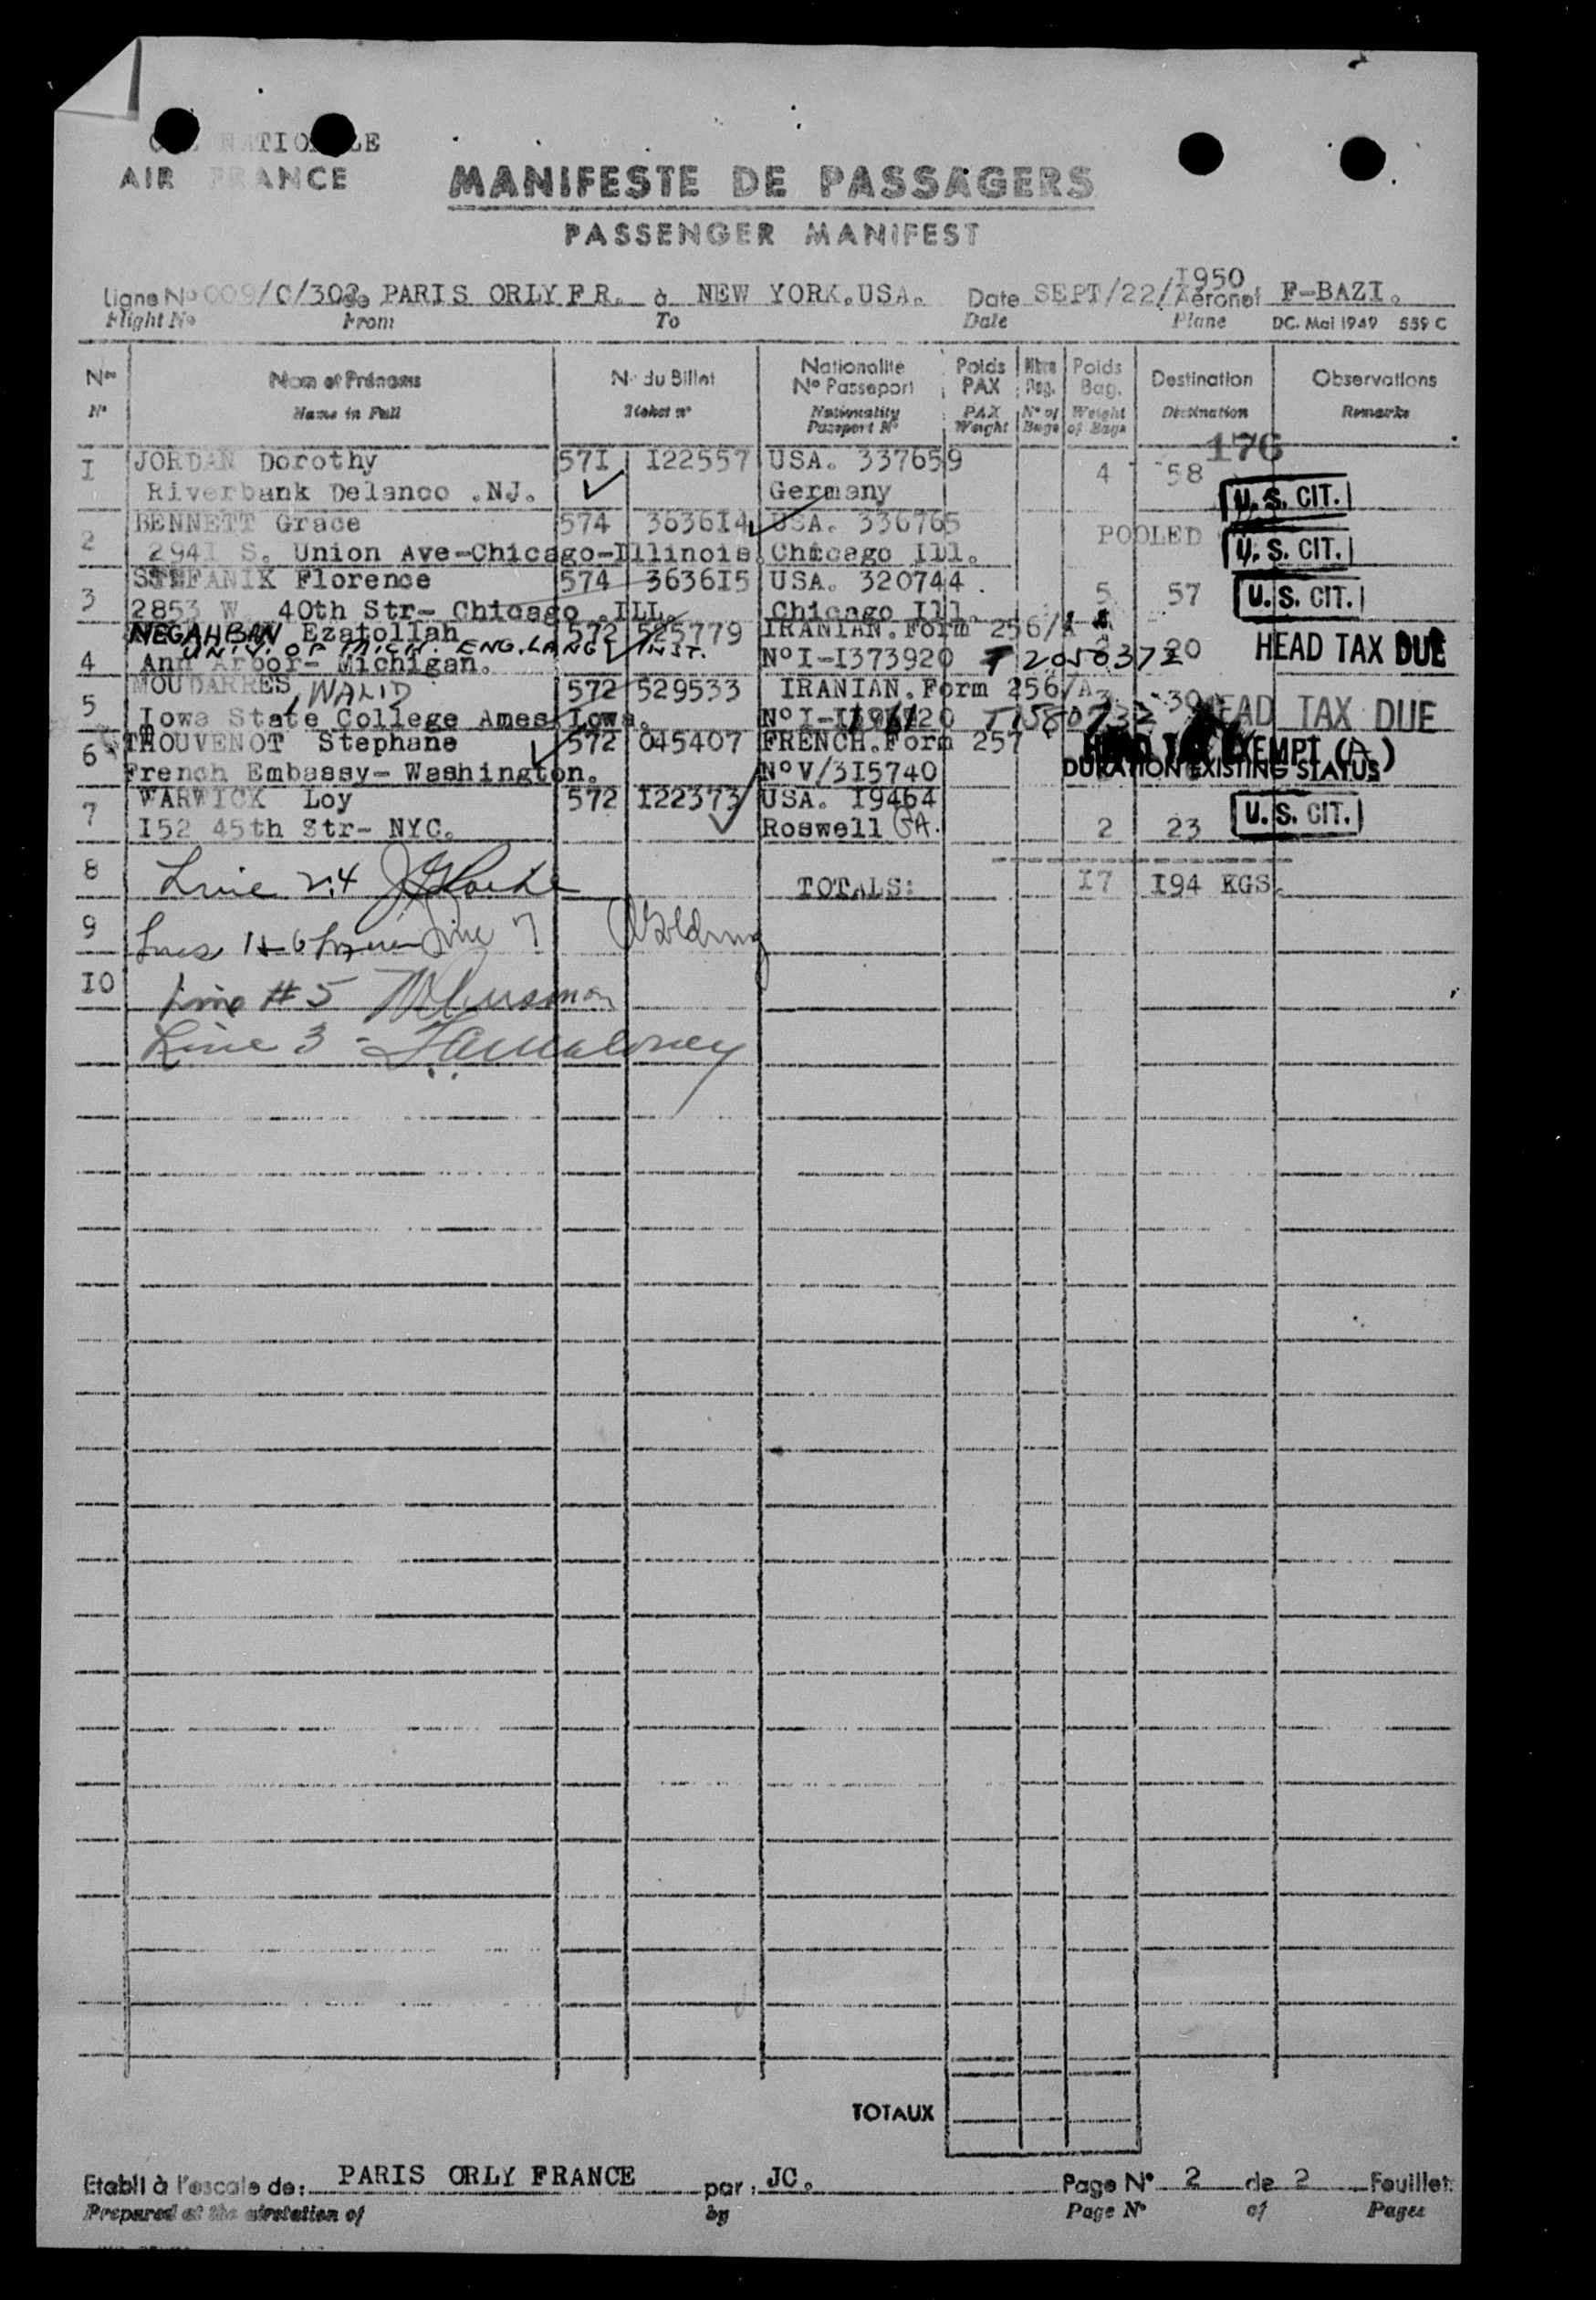 AIR FRANCE
MANIFESTE DE PASSAGERS
PASSENGER MANIFEST
1950
Ligne No 009/C/302 de PARIS ORLY FR. à NEW YORK.USA. Date SEPT/22/ Aéronef F-BAZI.
Flight No From To Date Plane DC. Mai 1949 559 C
Nos Nom et Prénoms No du Billet Nationalité No Passeport Poids PAX Nbre Bag. Poids Bag. Destination Observations
No Name in Full Ticket no Nationality Passport No PAX Weight No of Bags Weight of Bags Destination Remarks
176
I JORDAN Dorothy 57I I22557 USA. 337659 4 58 U.S. CIT.
Riverbank Delanco .NJ. Germany
2 BENNETT Grace 574 3636I4 USA. 336765 POOLED U.S. CIT.
294I S. Union Ave-Chicago-Illinois. Chicago Ill.
3 STEFANIK Florence 574 3636I5 USA. 320744. 5 57 U.S. CIT.
2853 W. 40th Str- Chicago .ILL. Chicago Ill.
4 NEGAHBAN Ezatollah 572 525779 IRANIAN.Form 256/A 20 HEAD TAX DUE
UNIV. OF MICH. ENG. LANG. INST.
Ann Arbor- Michigan. No I-I373920 T 2050372
5 MOUDARRES, WALID 572 529533 IRANIAN.Form 256/A 30 HEAD TAX DUE
Iowa State College Ames Iowa. No
6 THOUVENOT Stephane 572 045407 FRENCH.Form 257 HEAD TAX EXEMPT (A)
French Embassy- Washington. No V/3I5740 DURATION EXISTING STATUS
7 WARWICK Loy 572 I22373 USA. I9464 U.S. CIT.
I52 45th Str- NYC. Roswell GA. 2 23
8 Line 2,4 TOTALS: I7 I94 KGS.
9 Line 7 Golding
IO Line #5
Line 3 -
TOTAUX
Etabli à l'escale de: PARIS ORLY FRANCE par: JC. Page No 2 de 2 Feuillet
Prepared at the airstation of by Page No of Pages